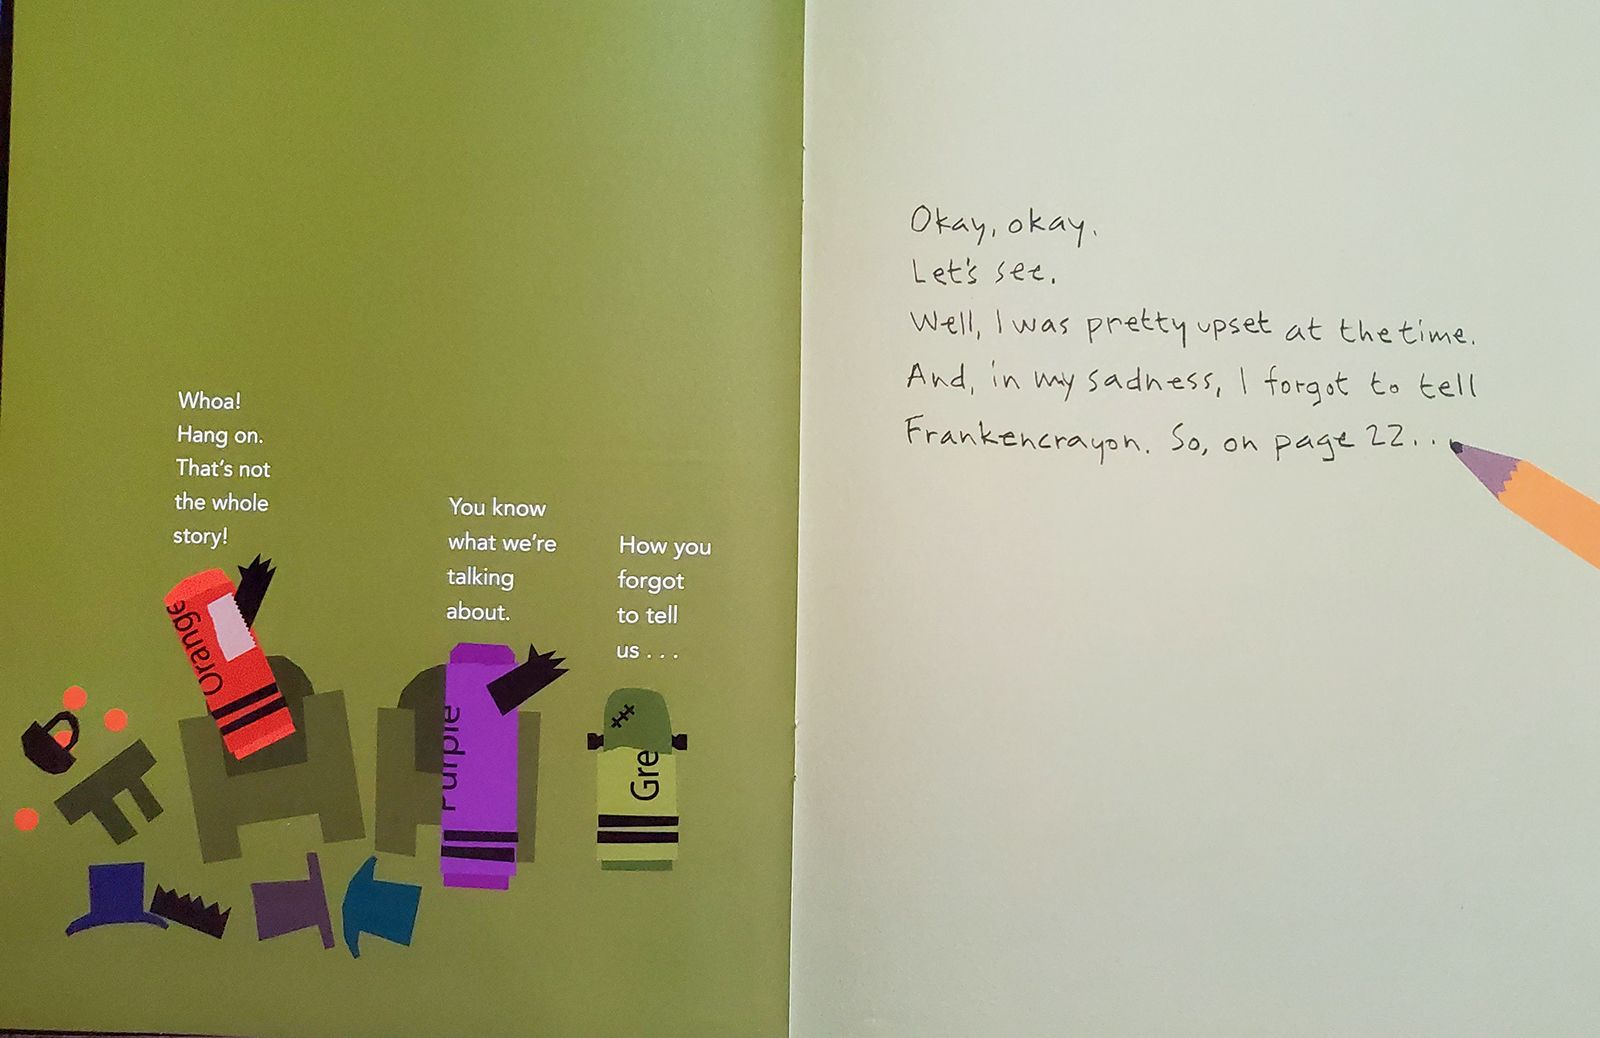 Whoa!
Hang on.
That's not
the whole
story!
You know
what we're
talking
about.
How you
forgot
to tell
us . . .
Orange
Purple
Gre
Okay, okay.
Let's see.
Well, I was pretty upset at the time.
And, in my sadness, I forgot to tell
Frankencrayon. So, on page 22...